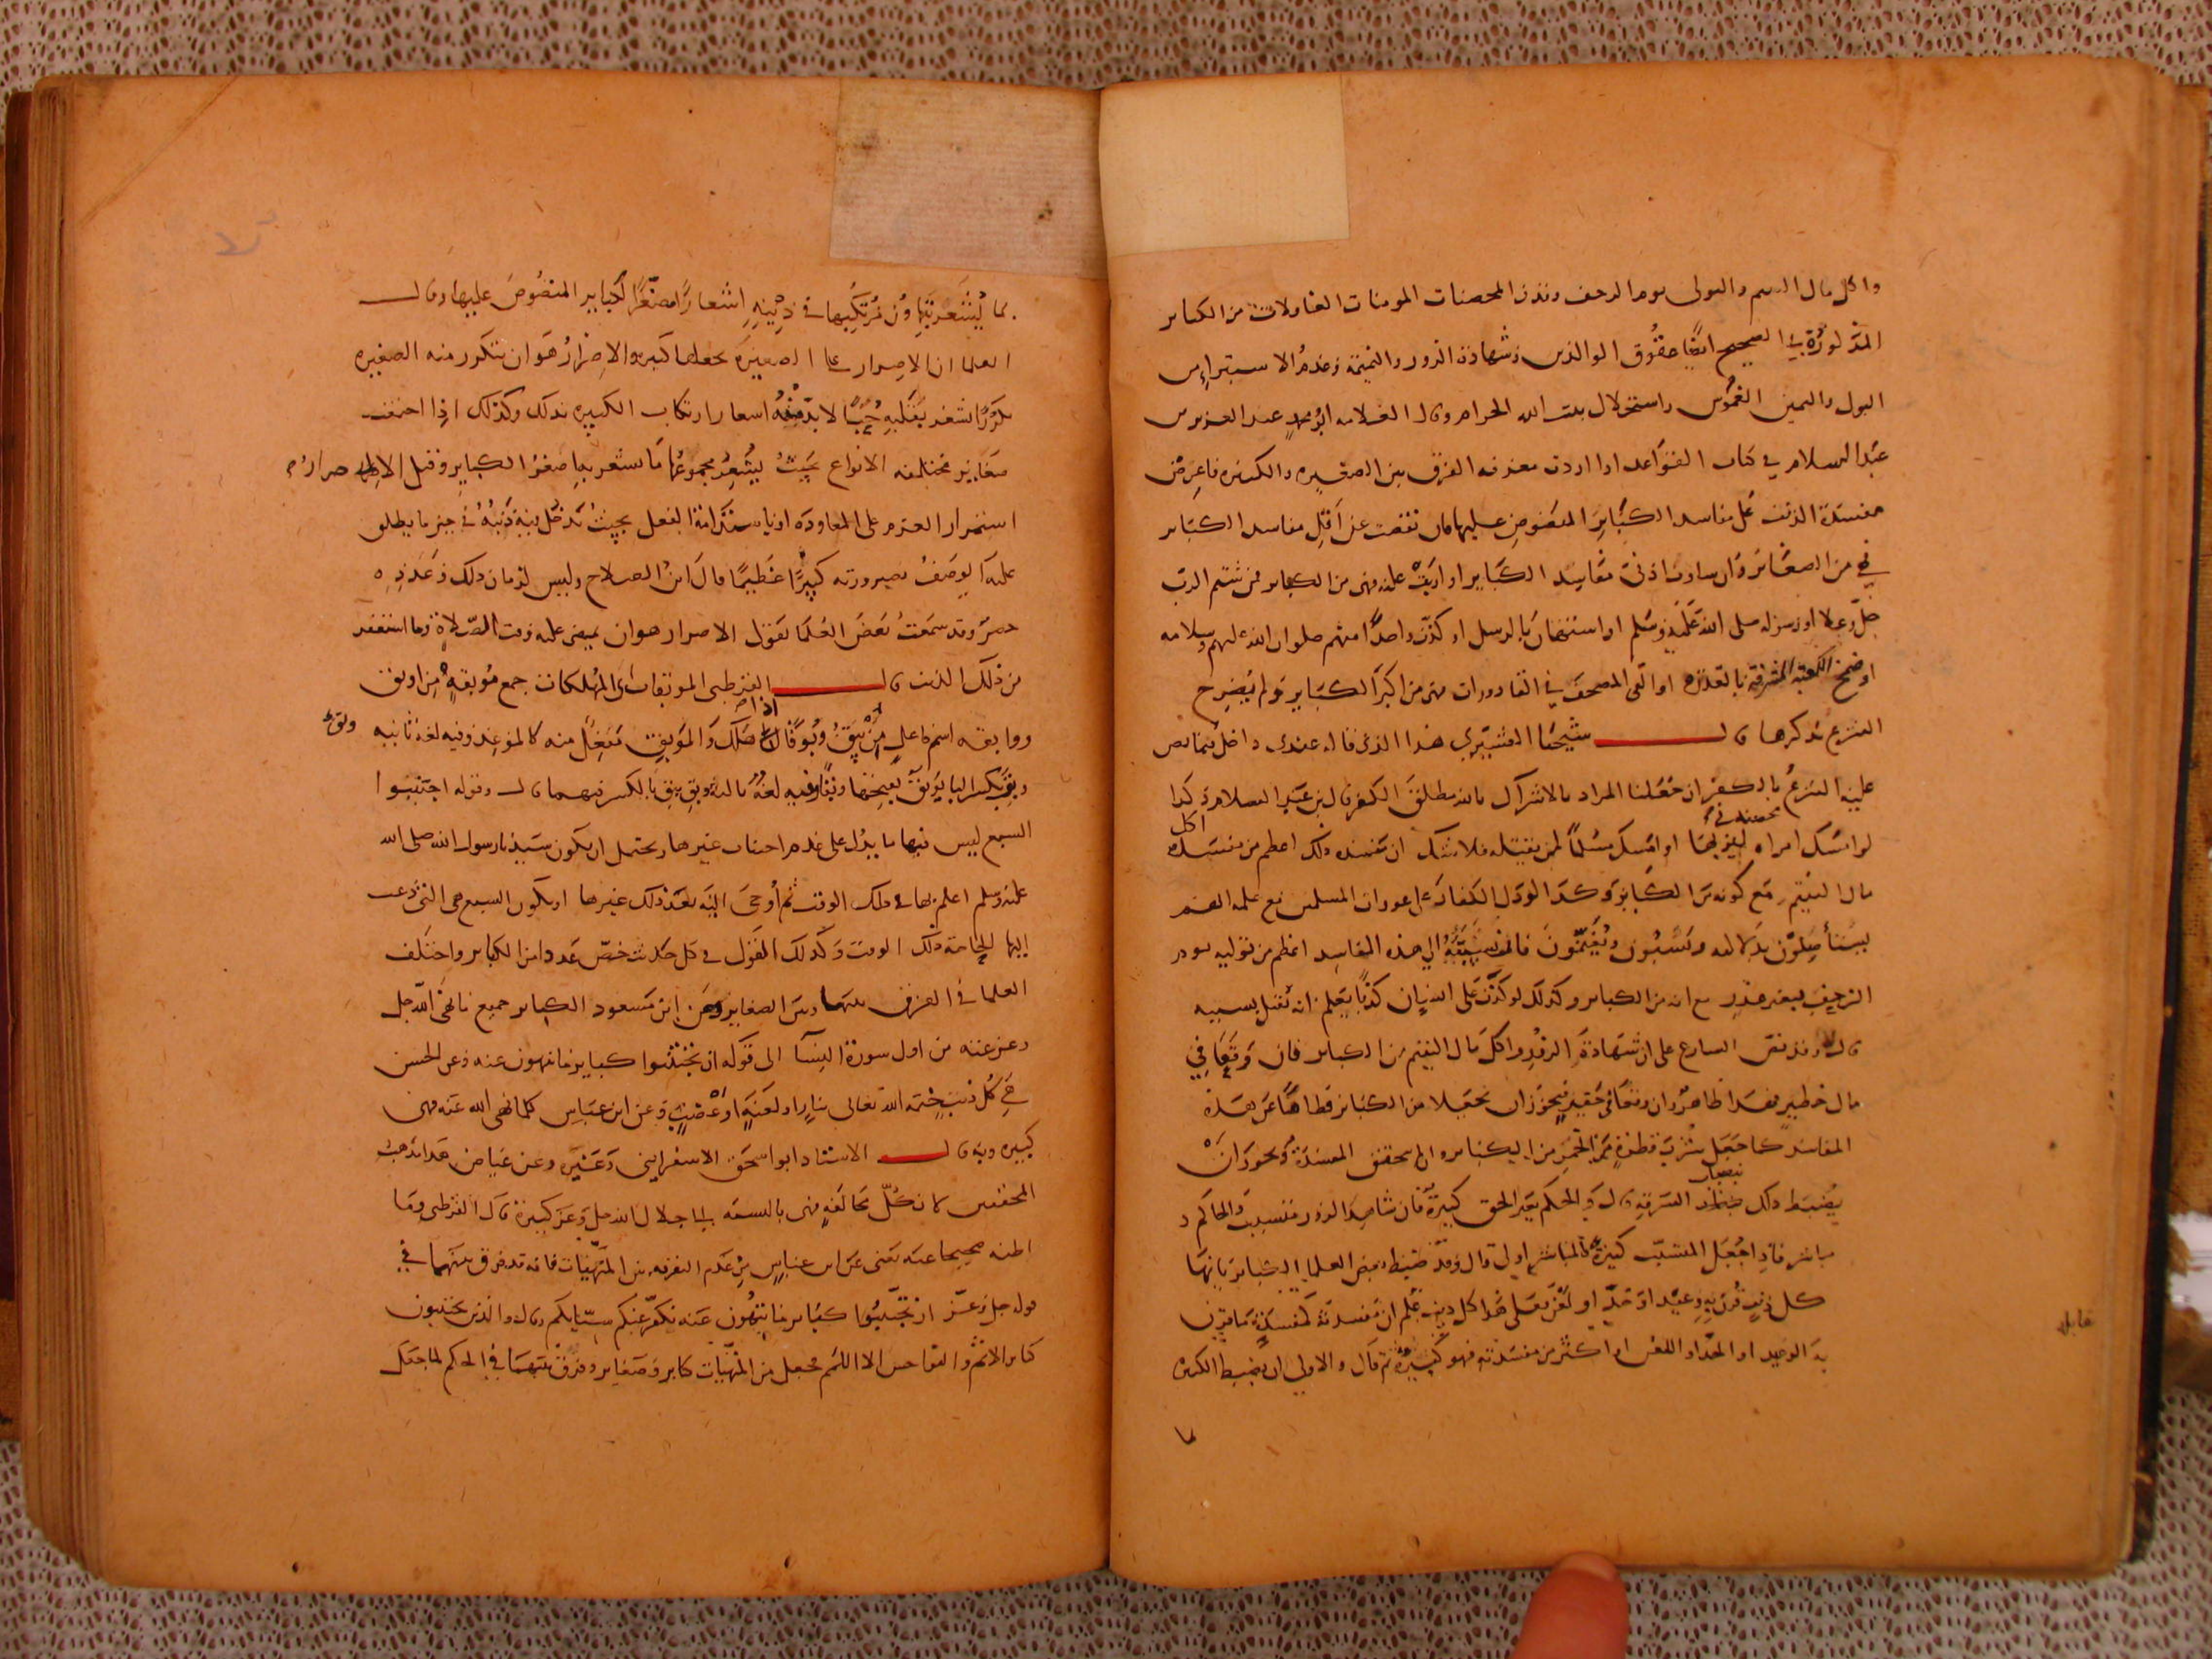 واكل مال اليتيم والتولى يوم الزحف وقذف المحصنات المومنات الغافلات من الكباير
المذكورة في الصحيح ايضا عقوق الوالدين وشهادة الزور والنميمة وعدم الاستبراء من
البول واليمين الغموس واستحلال بيت الله الحرام وقال العلامه ابو محمد عبد العزيز بن
عبد السلام في كتاب القواعد اذا اردت معرفه الفرق بين الصغيره والكبيره فاعرض
مفسدة الذنب على مفاسد الكبائر المنصوص عليها فان نقصت عن اقل مفاسد الكبائر
فهي من الصغائر وان ساوت ادنى مفاسد الكبائر او اربت عليه فهى من الكبائر فمن شتم الرب
جل وعلا او رسوله صلى الله عليه وسلم او استهان بالرسل او كذب واحدا منهم صلوات الله عليهم وسلامه
او ضمخ الكعبة المشرفة بالعذره او القى المصحف في القاذورات فهى من اكبر الكبائر ولم يصرح
الشرع بذكرها قال شيخنا القشيري هذا الذى قاله عندى داخل فيما نص
عليه الشرع بالكفر ان جعلنا المراد بالاشراك بالله مطلق الكفر قال بن عبد السلام وكذا
لو امسك امراه محصنه ليزنى بها او امسك مسلما لمن يقتله فلا شك ان مفسده ذلك اعظم من مفسده اكل
مال اليتيم مع كونه من الكبائر وكذا لو دل الكفار على عورات المسلمين مع علمه انهم
يستأصلون بدلالته ويسبون ويغنمون فان تسببه الى هذه المفاسد اعظم من توليه يوم
الزحف بغير عذر مع انه من الكبائر وكذلك لو كذب على انسان كذبا يعلم انه يقتل بسببه
قال وقد نص الشارع على ان شهادة الزور واكل مال اليتيم من الكبائر فان وقعا في
مال خطير فهذا ظاهر وان وقعا في حقير فيجوز ان يجعلا من الكبائر فطاما عن هذه
المفاسد كما جعل شرب قطرة من الخمر من الكبائر وان لم تتحقق المفسدة ويجوز ان
يضبط ذلك بنصاب السرقه قال والحكم بغير الحق كبيرة فان شاهد الزور متسبب والحاكم
مباشر فاذا جعل المتسبب كبيرة فالمباشر اولى قال وقد ضبط بعض العلماء الكبائر بانها
كل ذنب قرن به وعيد او حد او لعن فعلى هذا كل ذنب علم ان مفسدته كمفسدة ما قرن
به الوعيد او الحد او اللعن او اكثر من مفسدته فهو كبيرة ثم قال والاولى ان يضبط الكبيره
بما
بما يشعر بتهاون مرتكبها في دينه اشعار اصغر الكباير المنصوص عليها وقال
العلما ان الاصرار على الصغيره يجعلها كبيرة والاصرار هو ان تتكرر منه الصغيره
تكررا يشعر بقلة مبالاته بدينه اشعار ارتكاب الكبيره بذلك وكذلك اذا اجتمعت
صغاير مختلفه الانواع بحيث يشعر مجموعها ما يشعر به اصغر الكباير وقيل الاصرار
استمرار العزم على المعاوده او باستدامة الفعل بحيث يدخل به ذنبه في حيز ما يطلق
عليه الوصف بصيرورته كبيرا عظيما قال ابن الصلاح وليس لزمان ذلك وعدده
حصر وقد سمعت بعض العلما يقول الاصرار هو ان يمضى عليه وقت الصلاة وما استغفر
من ذلك الذنب قال القرطبى الموبقات اى المهلكات جمع موبقة من اوبق
وموابقه اسم فاعل من يبق وبوقا اذا هلك والموبق مفعل منه كالموعد وفيه لغة ثانيه
وبق بكسر البا يوبق بفتحها وبقا وفيه لغة ثالثة وبق يبق بالكسر فيهما قال وقوله اجتنبوا
السبع ليس فيها ما يدل على عدم اجتناب غيرها ويحتمل ان يكون سيدنا رسول الله صلى الله
عليه وسلم اعلم بها فى ذلك الوقت ثم أوحى اليه بعد ذلك غيرها او يكون السبع هى التى دعت
اليها الحاجة ذلك الوقت وكذلك القول في كل حديث خص عددا من الكباير واختلف
العلما في الفرق بينها وبين الصغاير فعن ابن مسعود الكباير جميع ما نهى الله جل
وعز عنه من اول سورة النسا الى قوله ان تجتنبوا كباير ما تنهون عنه وعن الحسن
هي كل ذنب ختمه الله تعالى بنار او لعنة او غضب وعن ابن عباس كل ما نهى الله عنه فهى
كبيره وبه قال الاستاد ابو اسحق الاسفراينى وغيره وعن عياض هذا مذهب
المحققين لان كل مخالفة فهى بالنسبه الى جلال الله جل وعز كبيرة قال القرطبى وما
اظنه صحيحا عنه يعنى عن ابن عباس من عدم التفرقه بين المنهيات فانه قد فرق بينهما في
قوله جل وعز ان تجتنبوا كباير ما تنهون عنه نكفر عنكم سيئاتكم وقال والذين يجتنبون
كباير الاثم والفواحش الا اللمم فجعل من المنهيات كباير وصغاير وفرق بينهما في الحكم لما جعل